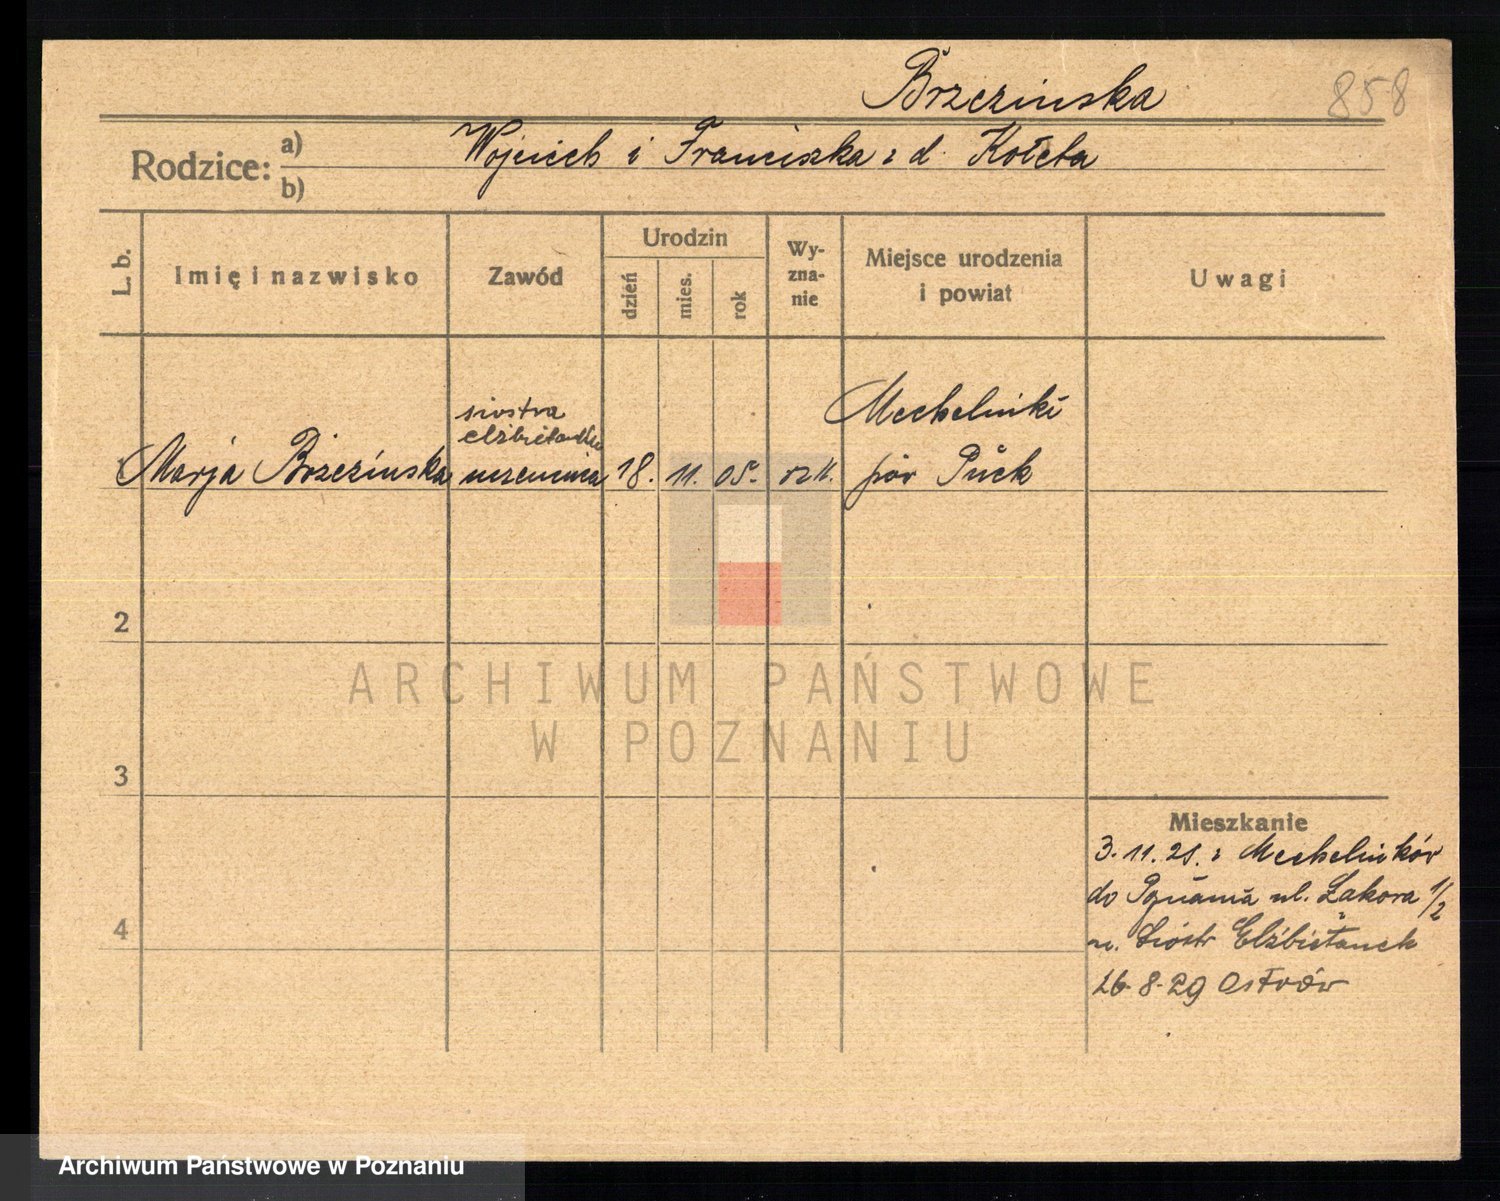 Brzezinska
858
Rodzice:
a)
Wojciech i Franciszka z d. Kołeta
b)
L. b.
Imię i nazwisko
Zawód
Urodzin
dzień
mies.
rok
Wy-
zna-
nie
Miejsce urodzenia
i powiat
Uwagi
1
Marja Brzezinska
siostra
elżbietanka
uczennica
18.
11.
05.
rzk.
Mechelinki
pow Puck
2
3
4
Mieszkanie
3.11.25. z Mechelinków
do Poznania ul. Łąkowa 1/2
u. Sióstr Elżbietanek
26.8.29 Ostrów
ARCHIWUM PAŃSTWOWE
W POZNANIU
Archiwum Państwowe w Poznaniu